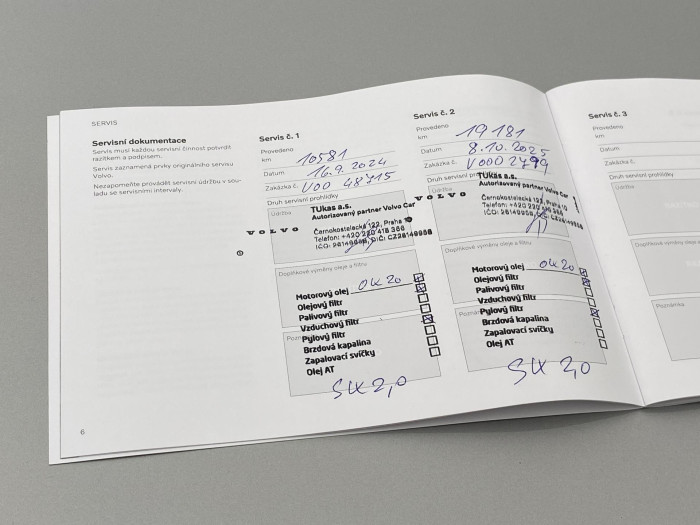 SERVIS
Servisní dokumentace
Servis musí každou servisní činnost potvrdit
razítkem a podpisem.
Servis zaznamená prvky originálního servisu
Volvo.
Nezapomeňte provádět servisní údržbu v sou-
ladu se servisními intervaly.
6
Servis č. 1
Provedeno
km
10581
Datum
16.9.2024
Zakázka č.
V00 48715
Druh servisní prohlídky
Údržba
TUkas a.s.
Autorizovaný partner Volvo Car
VOLVO
Černokostelecká 122, Praha 10
Telefon: +420 220 418 366
Doplňkové výměny oleje a filtru
Motorový olej OW20
Olejový filtr
Palivový filtr
Vzduchový filtr
Pylový filtr
Brzdová kapalina
Zapalovací svíčky
Olej AT
2,0
Servis č. 2
Provedeno
km
19181
Datum
8.10.2025
Zakázka č.
Druh servisní
Údržba
TUkas a.s.
Autorizovaný partner Volvo Car
VOLVO
Černokostelecká 122, Praha 10
Telefon: +420 220 418 366
Doplňkové výměny oleje a filtru
Motorový olej OW20
Olejový filtr
Palivový filtr
Vzduchový filtr
Pylový filtr
Brzdová kapalina
Zapalovací svíčky
Olej AT
2,0
Servis č. 3
Provedeno
km
Datum
Zakázka č.
Druh servisní prohlídky
Údržba
Doplňkové
Poznámka